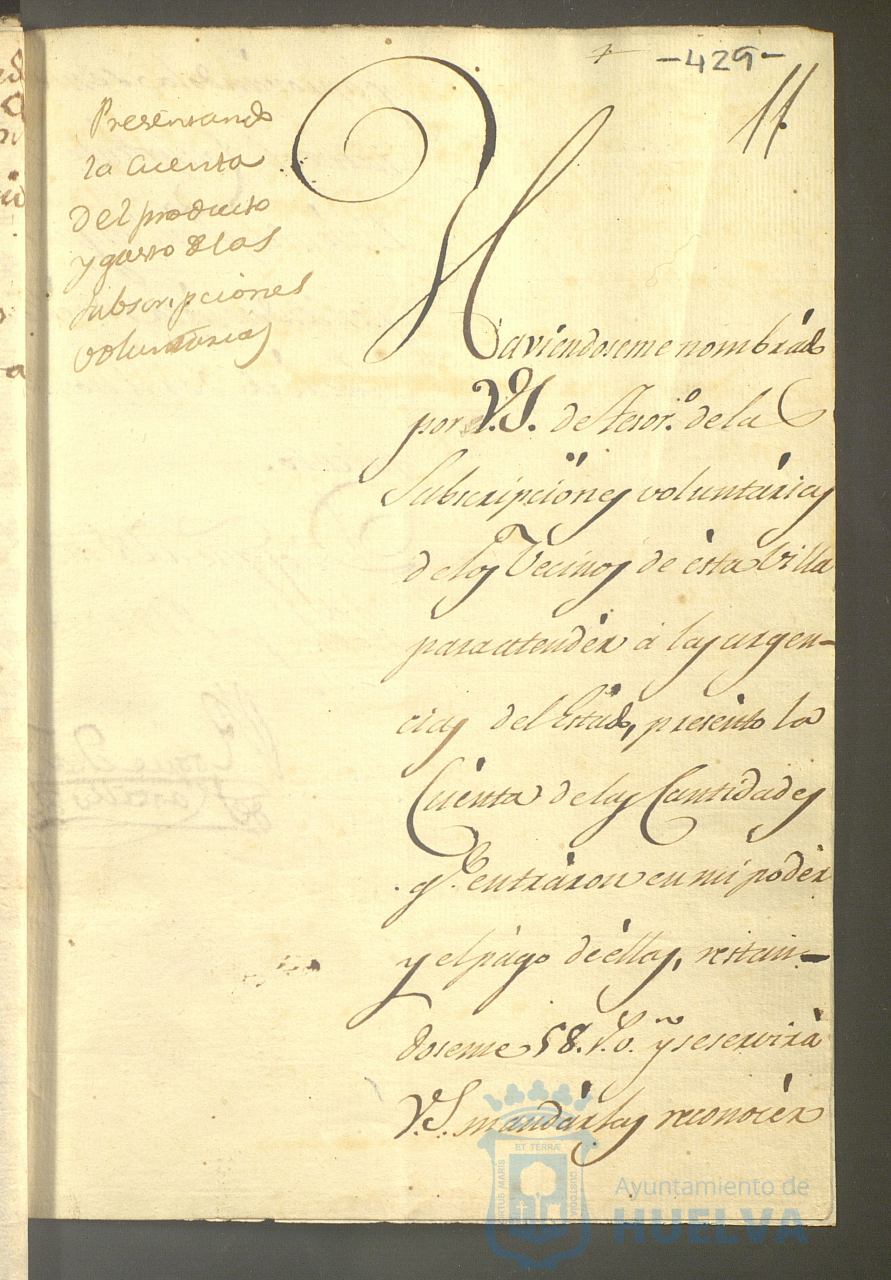 -429-
11.
Presentando
la Cuenta
del producto
y gasto de las
subscripciones
voluntarias
Haviendoseme nombrado
por V.S. de Tesor.º de la
Subscripciones voluntárias
de los Vecinos de ésta Villa
para atendér á las urgen-
cias del Estado, presénto la
Cuénta de las Cantidades
q.e entráron en mi podér
y el págo de éllas, restan-
doseme 58. r.v. y se servirá
V.S. mandárlas reconocér
PORTUS MARIS
ET TERRÆ
CUSTODIA
Ayuntamiento de
HUELVA